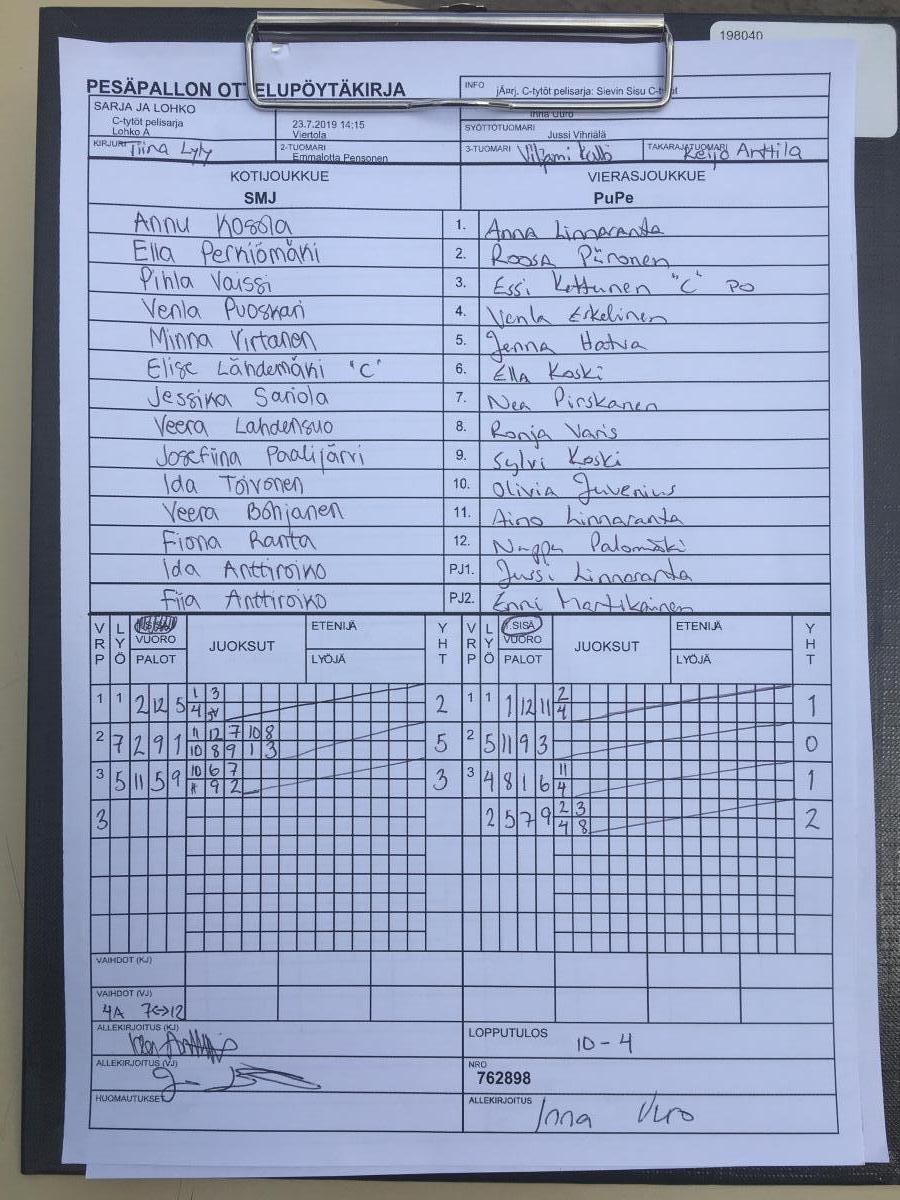 198040
PESÄPALLON OTTELUPÖYTÄKIRJA
INFO jÄnrj. C-tytöt pelisarja: Sievin Sisu C-tytöt
SARJA JA LOHKO
C-tytöt pelisarja
Lohko A
23.7.2019 14:15
Viertola
Inna Uuro
SYÖTTÖTUOMARI Jussi Vihriälä
KIRJURI Tiina Lyly
2-TUOMARI Emmalotta Pensonen
3-TUOMARI Viljami Kallio
TAKARAJATUOMARI Keijo Anttila
KOTIJOUKKUE VIERASJOUKKUE
SMJ PuPe
Annu Kosola 1. Anna Linnaranta
Ella Perkiömäki 2. Roosa Piironen
Pihla Vaissi 3. Essi Kettunen "C" PO
Venla Puoskari 4. Venla Eskelinen
Minna Virtanen 5. Jenna Hatva
Elise Lähdemäki "C" 6. Ella Koski
Jessika Sariola 7. Nea Pirskanen
Veera Lahdensuo 8. Ronja Varis
Josefiina Paalijärvi 9. Sylvi Koski
Ida Toivonen 10. Olivia Juvenius
Veera Bohjanen 11. Aino Linnaranta
Fiona Ranta 12. Palomäki
Ida Anttiroiko PJ1. Jussi Linnaranta
Fiia Anttiroiko PJ2. Enni Martikainen
VRP LYÖ VUORO PALOT JUOKSUT ETENIJÄ LYÖJÄ YHT VRP LYÖ 1.SISÄ VUORO PALOT JUOKSUT ETENIJÄ LYÖJÄ YHT
1 1 2 12 5 1 3 2 1 1 1 12 11 2 1
4 4
2 7 2 9 1 11 12 7 10 8 5 2 5 11 9 3 0
10 8 9 1 3
3 5 11 5 9 10 6 7 3 3 4 8 1 6 11 1
9 2 4
3 2 5 7 9 2 3 2
4 8
VAIHDOT (KJ)
VAIHDOT (VJ)
4A 7↔12
ALLEKIRJOITUS (KJ)
LOPPUTULOS 10-4
ALLEKIRJOITUS (VJ)
NRO
762898
HUOMAUTUKSET
ALLEKIRJOITUS Inna Uuro